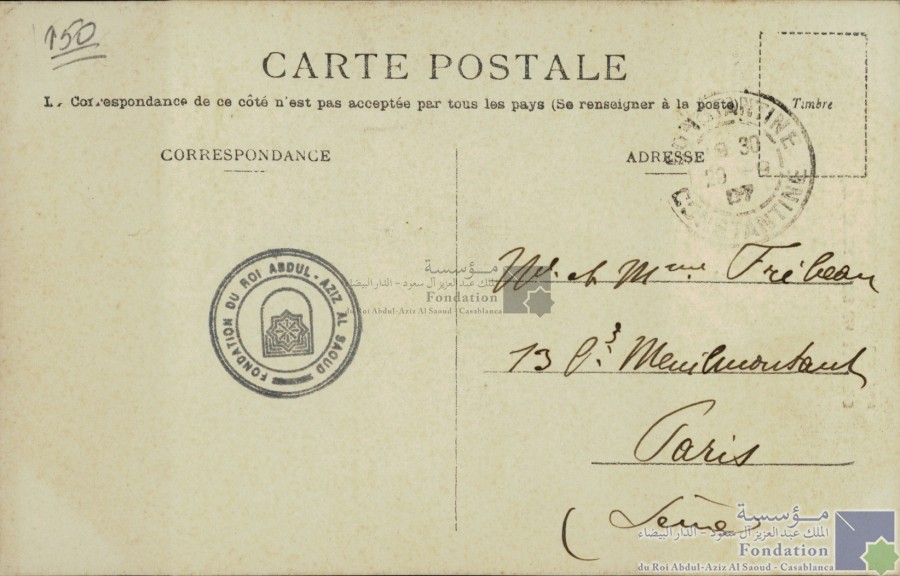 150
CARTE POSTALE
La Correspondance de ce côté n'est pas acceptée par tous les pays (Se renseigner à la poste)
Timbre
CORRESPONDANCE
ADRESSE
CONSTANTINE
9 30
20 -9
07
CONSTANTINE
FONDATION DU ROI ABDUL-AZIZ AL SAOUD
مؤسسة
الملك عبد العزيز آل سعود - الدار البيضاء
Fondation
du Roi Abdul-Aziz Al Saoud - Casablanca
M. et Mme Fribeau
13 Menilmontant
Paris
(Seine)
مؤسسة
الملك عبد العزيز آل سعود - الدار البيضاء
Fondation
du Roi Abdul-Aziz Al Saoud - Casablanca